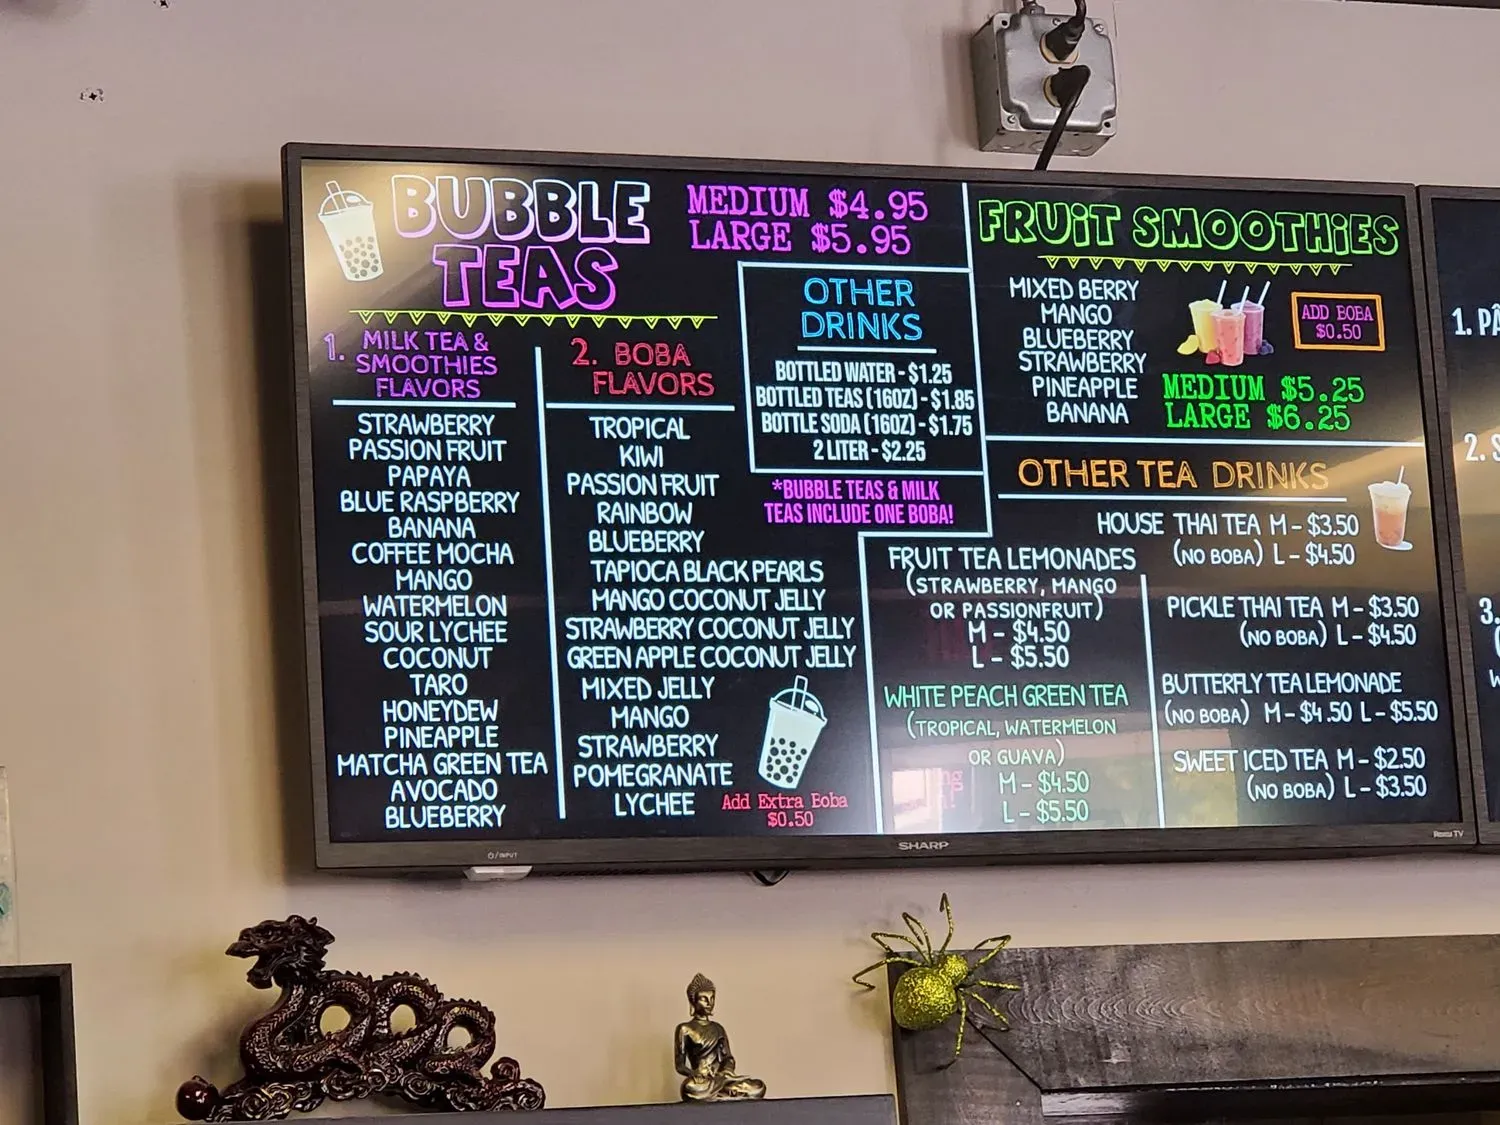 BUBBLE
TEAS
MEDIUM $4.95
LARGE $5.95
1. MILK TEA &
SMOOTHIES
FLAVORS
STRAWBERRY
PASSION FRUIT
PAPAYA
BLUE RASPBERRY
BANANA
COFFEE MOCHA
MANGO
WATERMELON
SOUR LYCHEE
COCONUT
TARO
HONEYDEW
PINEAPPLE
MATCHA GREEN TEA
AVOCADO
BLUEBERRY
2. BOBA
FLAVORS
TROPICAL
KIWI
PASSION FRUIT
RAINBOW
BLUEBERRY
TAPIOCA BLACK PEARLS
MANGO COCONUT JELLY
STRAWBERRY COCONUT JELLY
GREEN APPLE COCONUT JELLY
MIXED JELLY
MANGO
STRAWBERRY
POMEGRANATE
LYCHEE
Add Extra Boba
$0.50
OTHER
DRINKS
BOTTLED WATER - $1.25
BOTTLED TEAS (16OZ) - $1.85
BOTTLE SODA (16OZ) - $1.75
2 LITER - $2.25
*BUBBLE TEAS & MILK
TEAS INCLUDE ONE BOBA!
FRUIT SMOOTHIES
MIXED BERRY
MANGO
BLUEBERRY
STRAWBERRY
PINEAPPLE
BANANA
ADD BOBA
$0.50
MEDIUM $5.25
LARGE $6.25
OTHER TEA DRINKS
FRUIT TEA LEMONADES
(STRAWBERRY, MANGO
OR PASSIONFRUIT)
M - $4.50
L - $5.50
WHITE PEACH GREEN TEA
(TROPICAL, WATERMELON
OR GUAVA)
M - $4.50
L - $5.50
HOUSE THAI TEA M - $3.50
(NO BOBA) L - $4.50
PICKLE THAI TEA M - $3.50
(NO BOBA) L - $4.50
BUTTERFLY TEA LEMONADE
(NO BOBA) M - $4.50 L - $5.50
SWEET ICED TEA M - $2.50
(NO BOBA) L - $3.50
SHARP
Roku TV
/INPUT
1. PÂ
2. S
3.